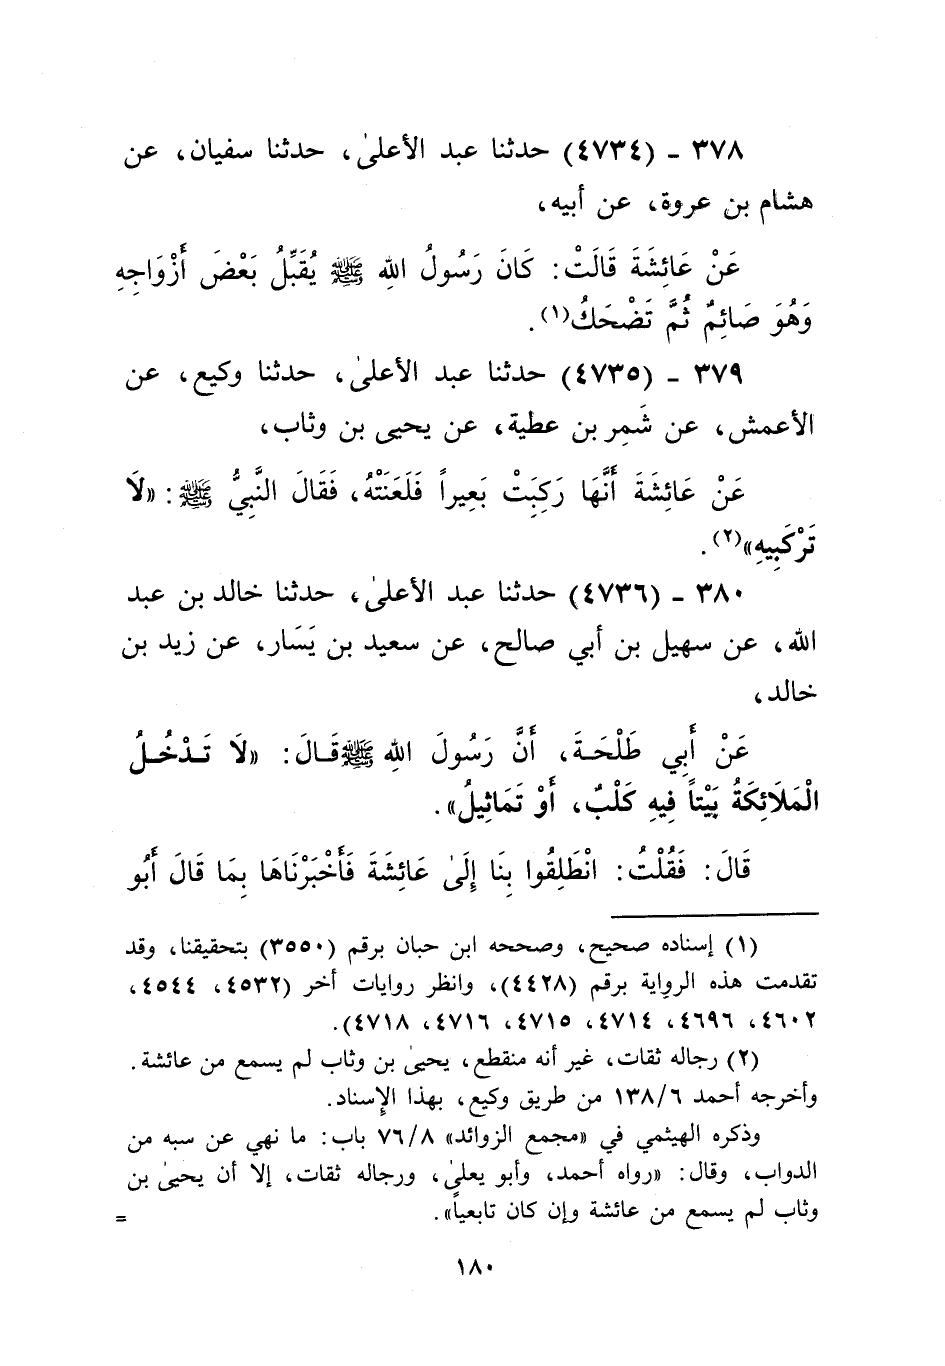 ٣٧٨ - (٤٧٣٤) حدثنا عبد الأعلىٰ، حدثنا سفيان، عن
هشام بن عروة، عن أبيه،
عَنْ عَائِشَةَ قَالَتْ: كَانَ رَسُولُ اللهِ ﷺ يُقَبِّلُ بَعْضَ أَزْوَاجِهِ
وَهُوَ صَائِمٌ ثُمَّ تَضْحَكُ(١).
٣٧٩ - (٤٧٣٥) حدثنا عبد الأعلىٰ، حدثنا وكيع، عن
الأعمش، عن شَمِر بن عطية، عن يحيى بن وثاب،
عَنْ عَائِشَةَ أَنَّهَا رَكِبَتْ بَعِيراً فَلَعَنَتْهُ، فَقَالَ النَّبِيُّ ﷺ: «لَا
تَرْكَبِيهِ»(٢).
٣٨٠ - (٤٧٣٦) حدثنا عبد الأعلىٰ، حدثنا خالد بن عبد
الله، عن سهيل بن أبي صالح، عن سعيد بن يَسَار، عن زيد بن
خالد،
عَنْ أَبِي طَلْحَةَ، أَنَّ رَسُولَ اللهِ ﷺ قَالَ: «لَا تَدْخُلُ
الْمَلَائِكَةُ بَيْتاً فِيهِ كَلْبٌ، أَوْ تَمَاثِيلُ».
قَالَ: فَقُلْتُ: انْطَلِقُوا بِنَا إِلَىٰ عَائِشَةَ فَأَخْبَرْنَاهَا بِمَا قَالَ أَبُو
(١) إسناده صحيح، وصححه ابن حبان برقم (٣٥٥٠) بتحقيقنا، وقد
تقدمت هذه الرواية برقم (٤٤٢٨)، وانظر روايات أخر (٤٥٣٢، ٤٥٤٤،
٤٦٠٢، ٤٦٩٦، ٤٧١٤، ٤٧١٥، ٤٧١٦، ٤٧١٨).
(٢) رجاله ثقات، غير أنه منقطع، يحيىٰ بن وثاب لم يسمع من عائشة.
وأخرجه أحمد ١٣٨/٦ من طريق وكيع، بهذا الإسناد.
وذكره الهيثمي في «مجمع الزوائد» ٧٦/٨ باب: ما نهي عن سبه من
الدواب، وقال: «رواه أحمد، وأبو يعلىٰ، ورجاله ثقات، إلا أن يحيىٰ بن
وثاب لم يسمع من عائشة وإن كان تابعياً». =
١٨٠